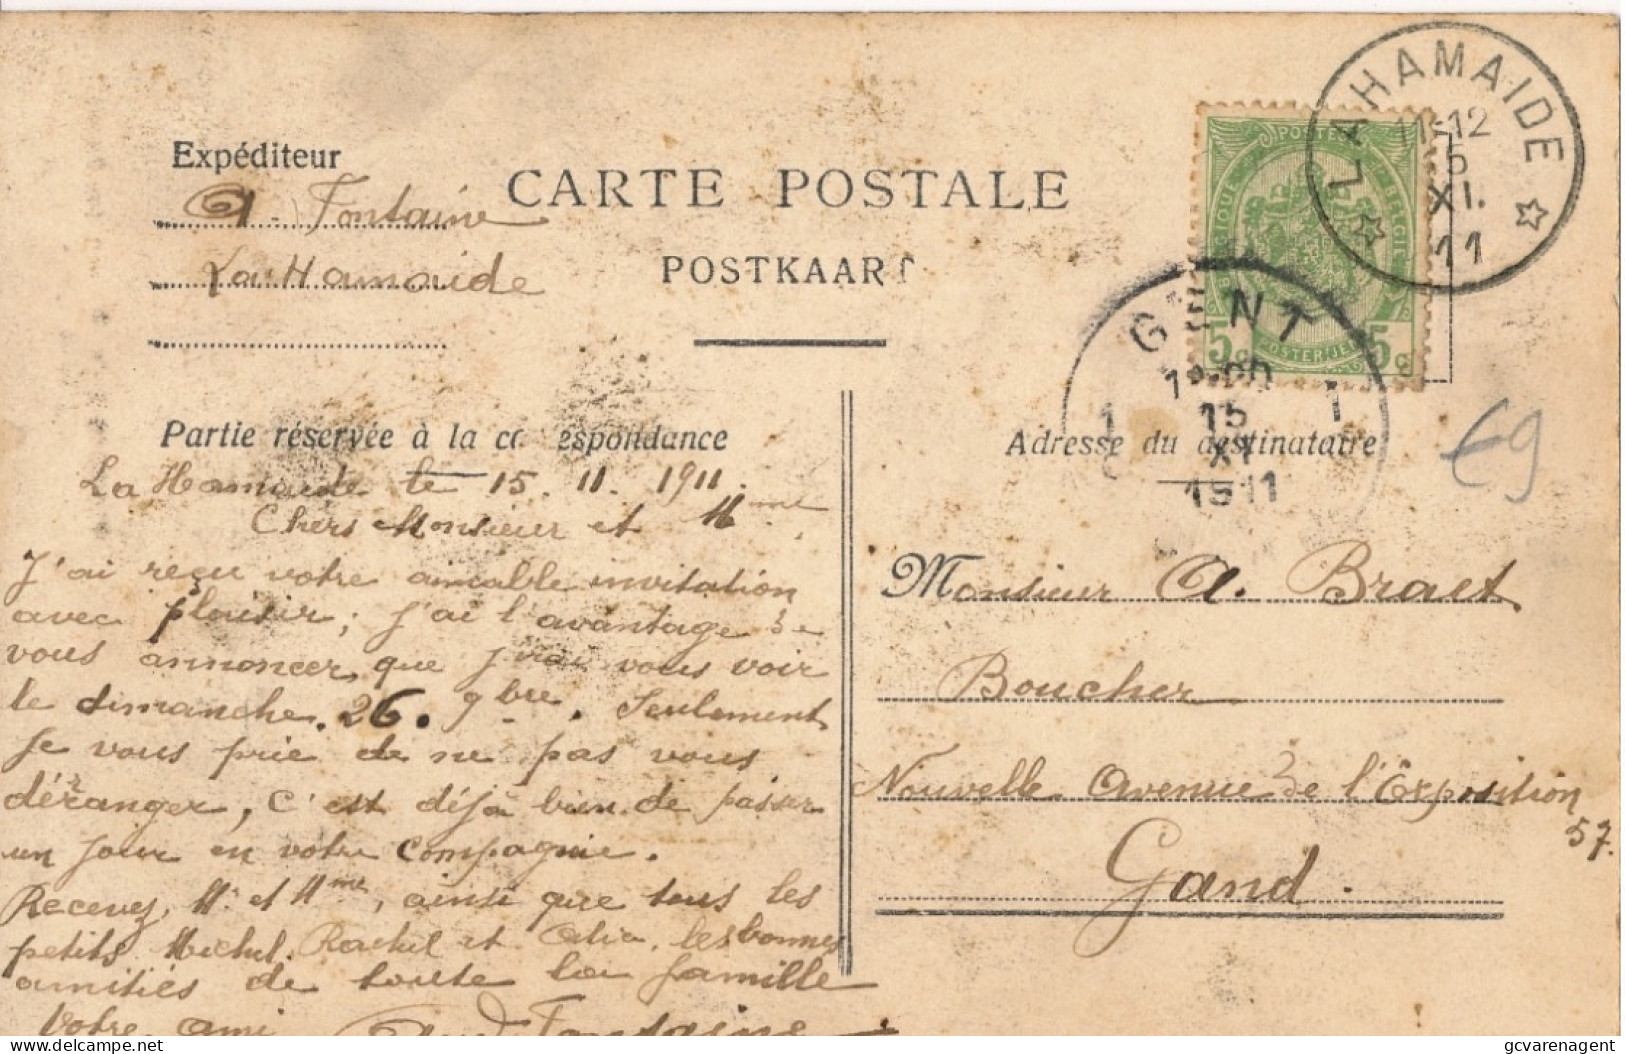 Expéditeur
A. Fontaine
La Hamaide
CARTE POSTALE
POSTKAART
POSTES
BELGIQUE
BELGIE
POSTERIJEN
5c 5c
LA HAMAIDE
11-12
XI.
11
GENT
15
XI
1911
1 1
€9
Partie réservée à la correspondance
La Hamaide le 15. 11. 1911.
Chers Monsieur et Mme.
J'ai reçu votre aimable invitation
avec plaisir; j'ai l'avantage de
vous annoncer que j'irai vous voir
le dimanche. 26. 9bre. Seulement
je vous prie de ne pas vous
déranger, c'est déjà bien de passer
un jour en votre compagnie.
Recevez, Mr et Mme, ainsi que tous les
petits Michel, Rachel et Alia, les bonnes
amitiés de toute la famille
Votre ami Fontaine
Adresse du destinataire
Monsieur A. Braet
Boucher
Nouvelle Avenue de l'Exposition
57.
Gand.
delcampe.net
gcvarenagent